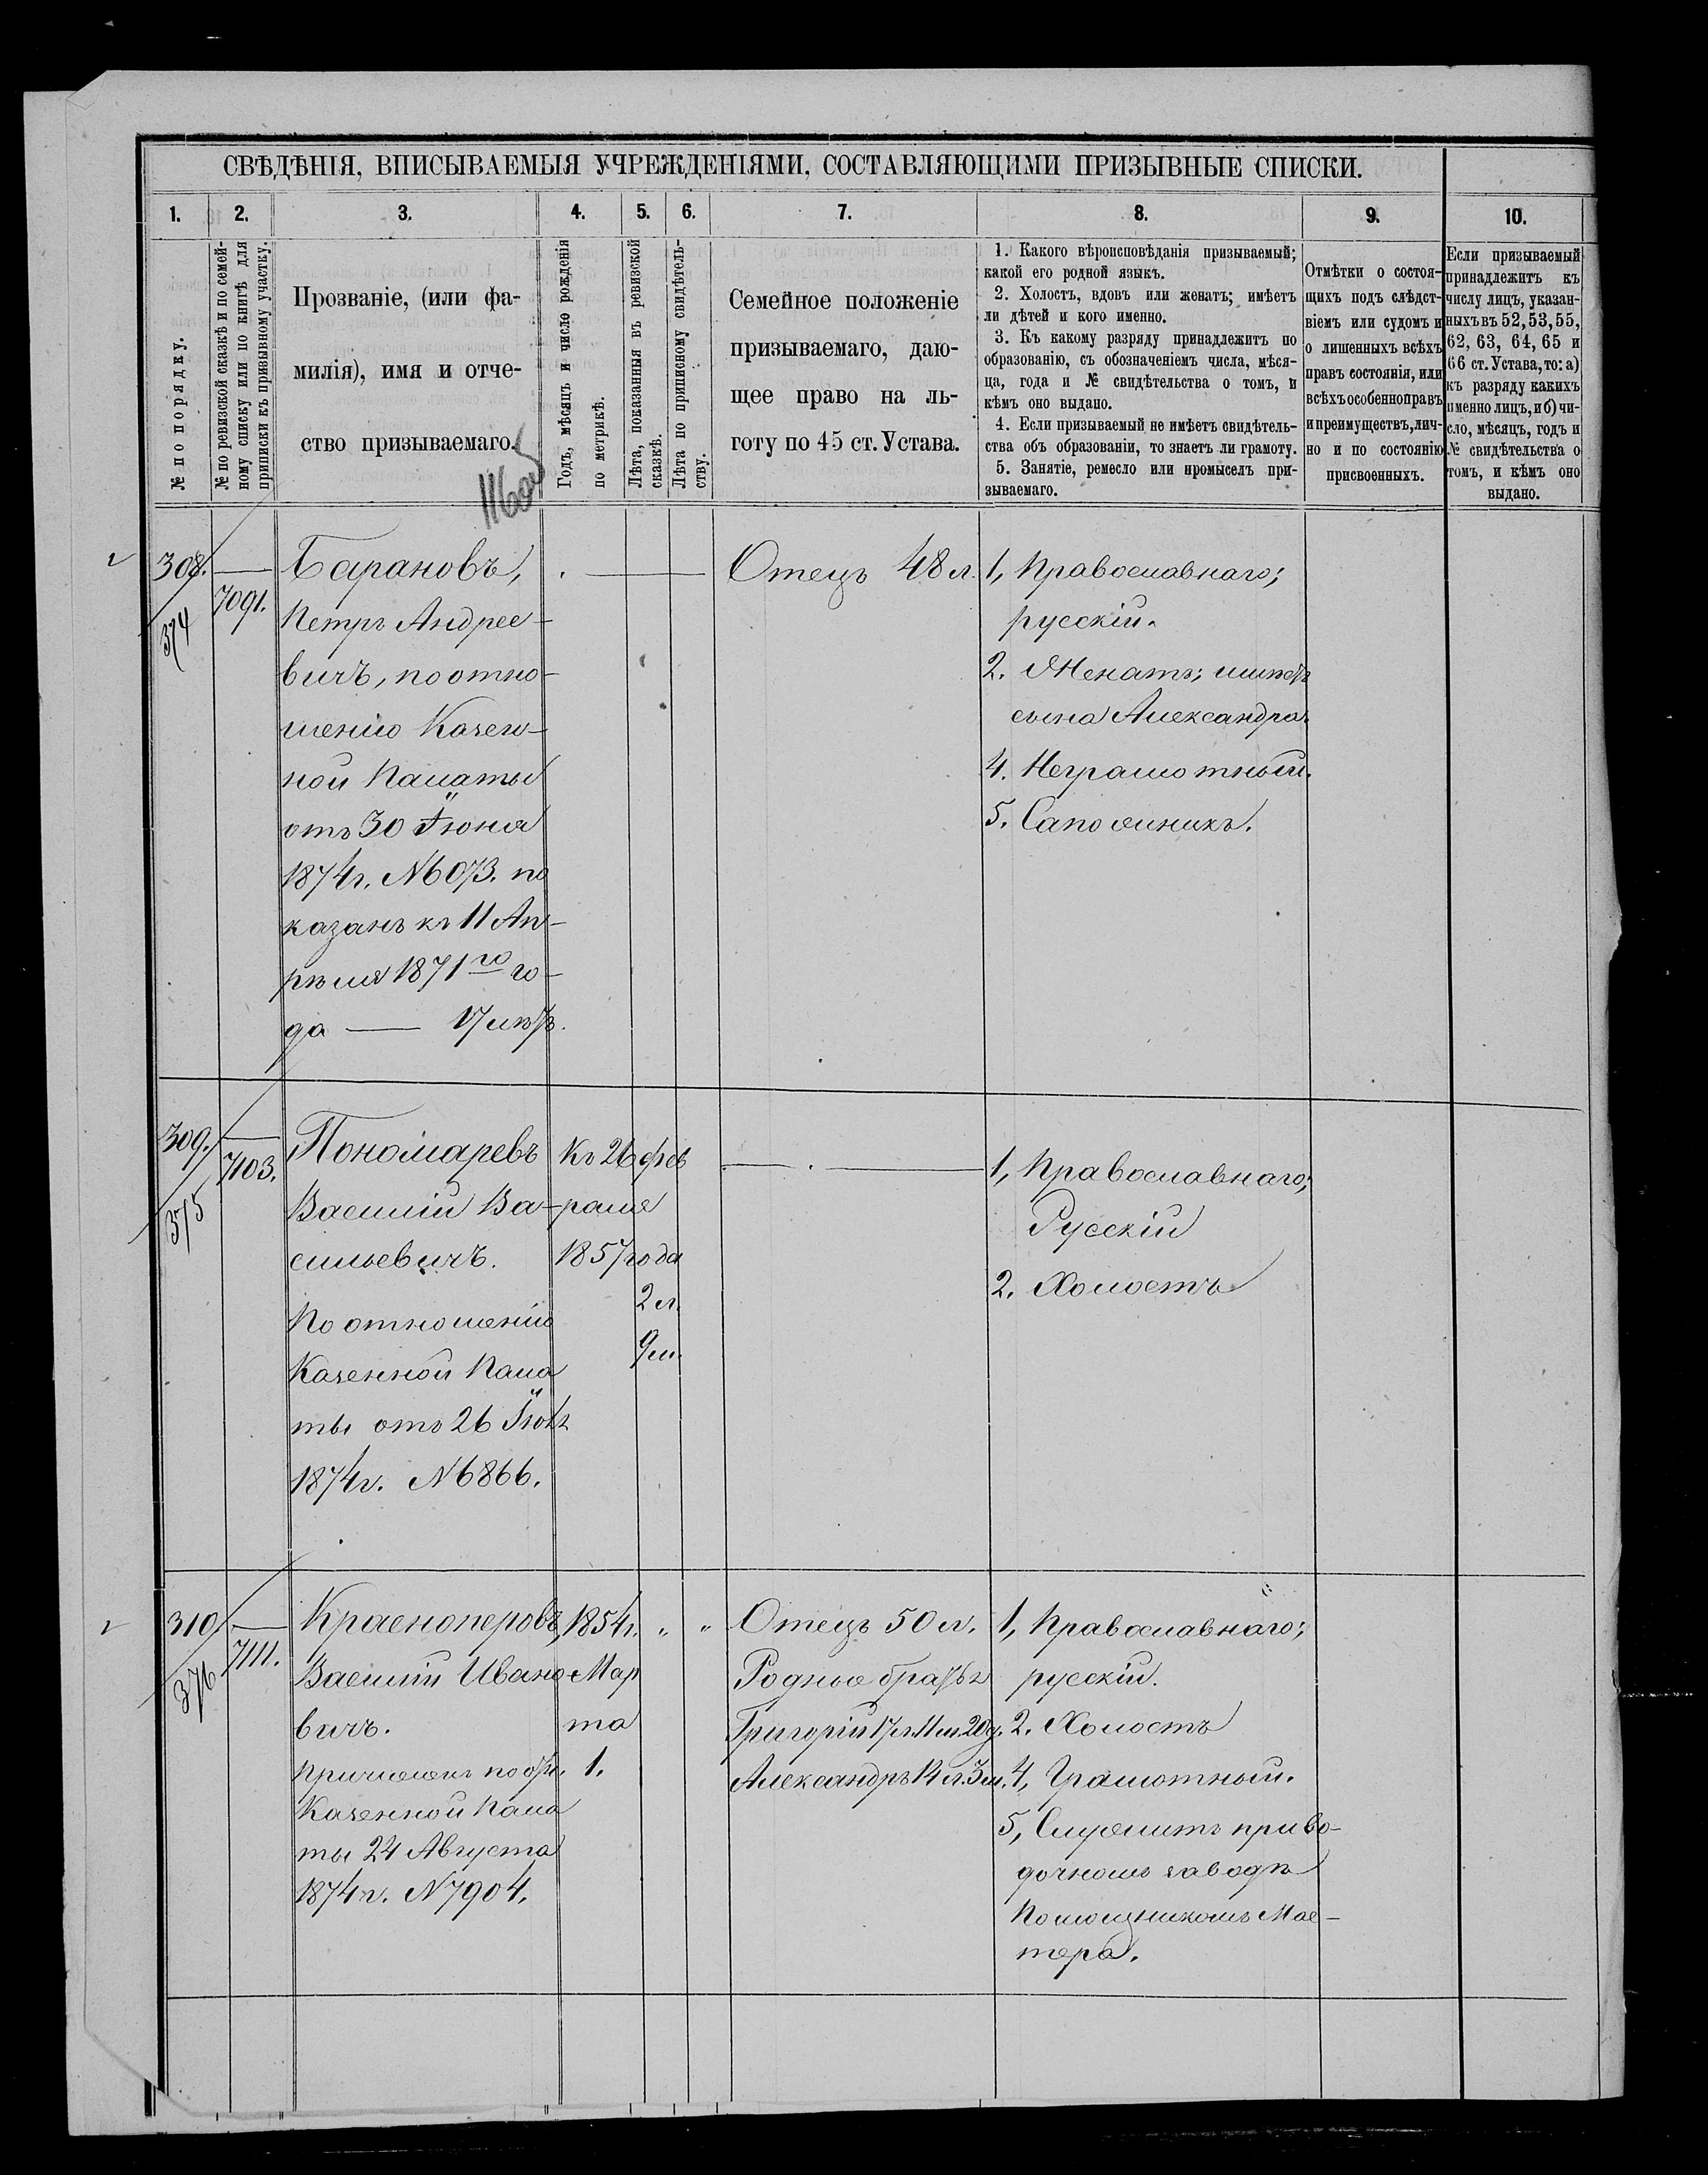 СВѢДѢНІЯ, ВПИСЫВАЕМЫЯ УЧРЕЖДЕНІЯМИ, СОСТАВЛЯЮЩИМИ ПРИЗЫВНЫЕ СПИСКИ.
1.
2.
3.
4.
5.
6.
7.
8.
9.
10.
№ по порядку.
№ по ревизской сказкѣ и по семей-
ному списку или по книгѣ для
приписки къ призывному участку.
Прозваніе, (или фа-
милія), имя и отче-
ство призываемаго.
Годъ, мѣсяцъ и число рожденія
по метрикѣ.
Лѣта, показанныя въ ревизской
сказкѣ.
Лѣта по приписному свидѣтель-
ству.
Семейное положеніе
призываемаго, даю-
щее право на ль-
готу по 45 ст. Устава.
1. Какого вѣроисповѣданія призываемый;
какой его родной языкъ.
2. Холостъ, вдовъ или женатъ; имѣетъ
ли дѣтей и кого именно.
3. Къ какому разряду принадлежитъ по
образованію, съ обозначеніемъ числа, мѣся-
ца, года и № свидѣтельства о томъ, и
кѣмъ оно выдано.
4. Если призываемый не имѣетъ свидѣтель-
ства объ образованіи, то знаетъ ли грамоту.
5. Занятіе, ремесло или промыселъ при-
зываемаго.
Отмѣтки о состоя-
щихъ подъ слѣдст-
віемъ или судомъ и
о лишенныхъ всѣхъ
правъ состоянія, или
всѣхъ особенно правъ
и преимуществъ, лич-
но и по состоянію
присвоенныхъ.
Если призываемый
принадлежитъ къ
числу лицъ, указан-
ныхъ въ 52, 53, 55,
62, 63, 64, 65 и
66 ст. Устава, то: а)
къ разряду какихъ
именно лицъ, и б) чи-
сло, мѣсяцъ, годъ и
№ свидѣтельства о
томъ, и кѣмъ оно
выдано.
308.
374
7091.
Барановъ,
Петръ Андрее-
вичъ, по отно-
шенію Казен-
ной Палаты
отъ 30 Іюня
1874 г. N 6073. по
казанъ къ 11 Ап-
рѣля 1871го го-
да — 17 лѣтъ.
Отецъ 48 л.
1, Православнаго;
русскій.
2. Женатъ; имѣетъ
сына Александра.
4. Неграмотный.
5. Сапожникъ.
309.
375
7103.
Пономаревъ
Василій Ва-
сильевичъ.
По отношенію
Казенной Пала
ты отъ 26 Іюля
1874 г. N 6866.
Къ 26 фев
раля
1857 года
2 л.
9 м.
1, Православнаго;
Русскій
2. Холостъ
310
376
7111.
Красноперовъ,
Василій Ивано-
вичъ.
Причисленъ по отн.
Казенной Пала
ты 24 Августа
1874 г. N 7904.
1854 г.
Мар
та
1.
" "
Отецъ 50 л.
Родные братья
Григорій 17 л. 11 м. 20 д.
Александръ 14 л. 3 м.
1, Православнаго;
русскій.
2. Холостъ
4, Грамотный.
5, Служитъ при во-
дочномъ заводѣ
Помощникомъ Мас-
тера.